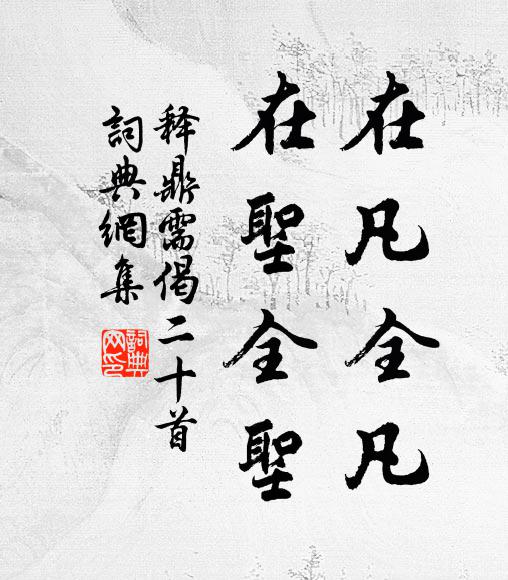 在凡全凡
在聖全聖
释鼎需偈二十首
詞典網集
詞典網印